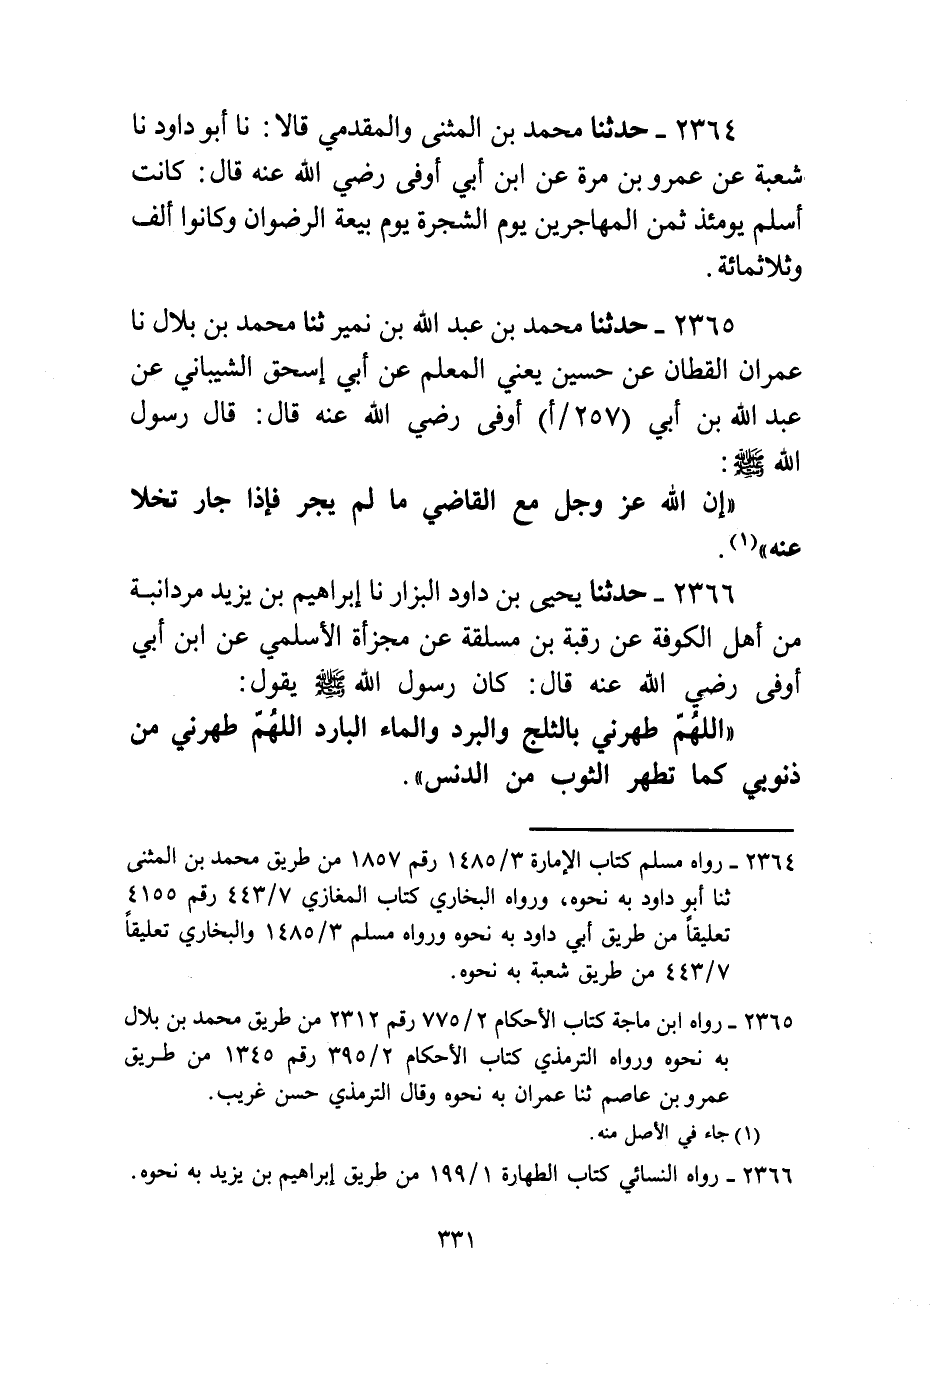 ٢٣٦٤ ـ حدثنا محمد بن المثنى والمقدمي قالا: نا أبو داود نا
شعبة عن عمرو بن مرة عن ابن أبي أوفى رضي الله عنه قال: كانت
أسلم يومئذ ثمن المهاجرين يوم الشجرة يوم بيعة الرضوان وكانوا ألف
وثلاثمائة.
٢٣٦٥ ـ حدثنا محمد بن عبد الله بن نمير ثنا محمد بن بلال نا
عمران القطان عن حسين يعني المعلم عن أبي إسحق الشيباني عن
عبد الله بن أبي (٢٥٧/أ) أوفى رضي الله عنه قال: قال رسول
الله ﷺ:
«إن الله عز وجل مع القاضي ما لم يجر فإذا جار تخلا
عنه»(١).
٢٣٦٦ ـ حدثنا يحيى بن داود البزار نا إبراهيم بن يزيد مردانبة
من أهل الكوفة عن رقبة بن مسلقة عن مجزأة الأسلمي عن ابن أبي
أوفى رضي الله عنه قال: كان رسول الله ﷺ يقول:
«اللهُمّ طهرني بالثلج والبرد والماء البارد اللهُمّ طهرني من
ذنوبي كما تطهر الثوب من الدنس».
٢٣٦٤ ـ رواه مسلم كتاب الإمارة ١٤٨٥/٣ رقم ١٨٥٧ من طريق محمد بن المثنى
ثنا أبو داود به نحوه، ورواه البخاري كتاب المغازي ٤٤٣/٧ رقم ٤١٥٥
تعليقاً من طريق أبي داود به نحوه ورواه مسلم ١٤٨٥/٣ والبخاري تعليقاً
٤٤٣/٧ من طريق شعبة به نحوه.
٢٣٦٥ ـ رواه ابن ماجة كتاب الأحكام ٧٧٥/٢ رقم ٢٣١٢ من طريق محمد بن بلال
به نحوه ورواه الترمذي كتاب الأحكام ٣٩٥/٢ رقم ١٣٤٥ من طريق
عمرو بن عاصم ثنا عمران به نحوه وقال الترمذي حسن غريب.
(١) جاء في الأصل منه.
٢٣٦٦ ـ رواه النسائي كتاب الطهارة ١٩٩/١ من طريق إبراهيم بن يزيد به نحوه.
٣٣١